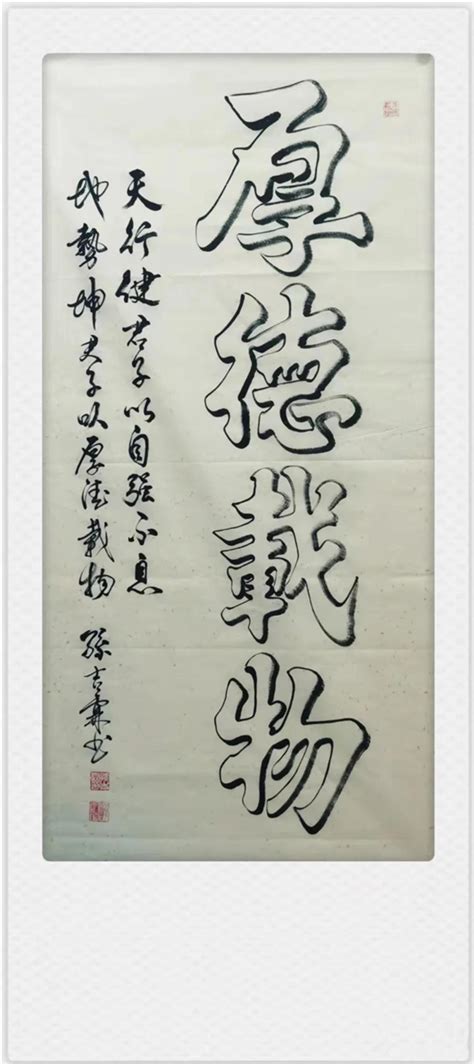 厚德載物
天行健君子以自强不息
地勢坤君子以厚德載物 孫吉霖书